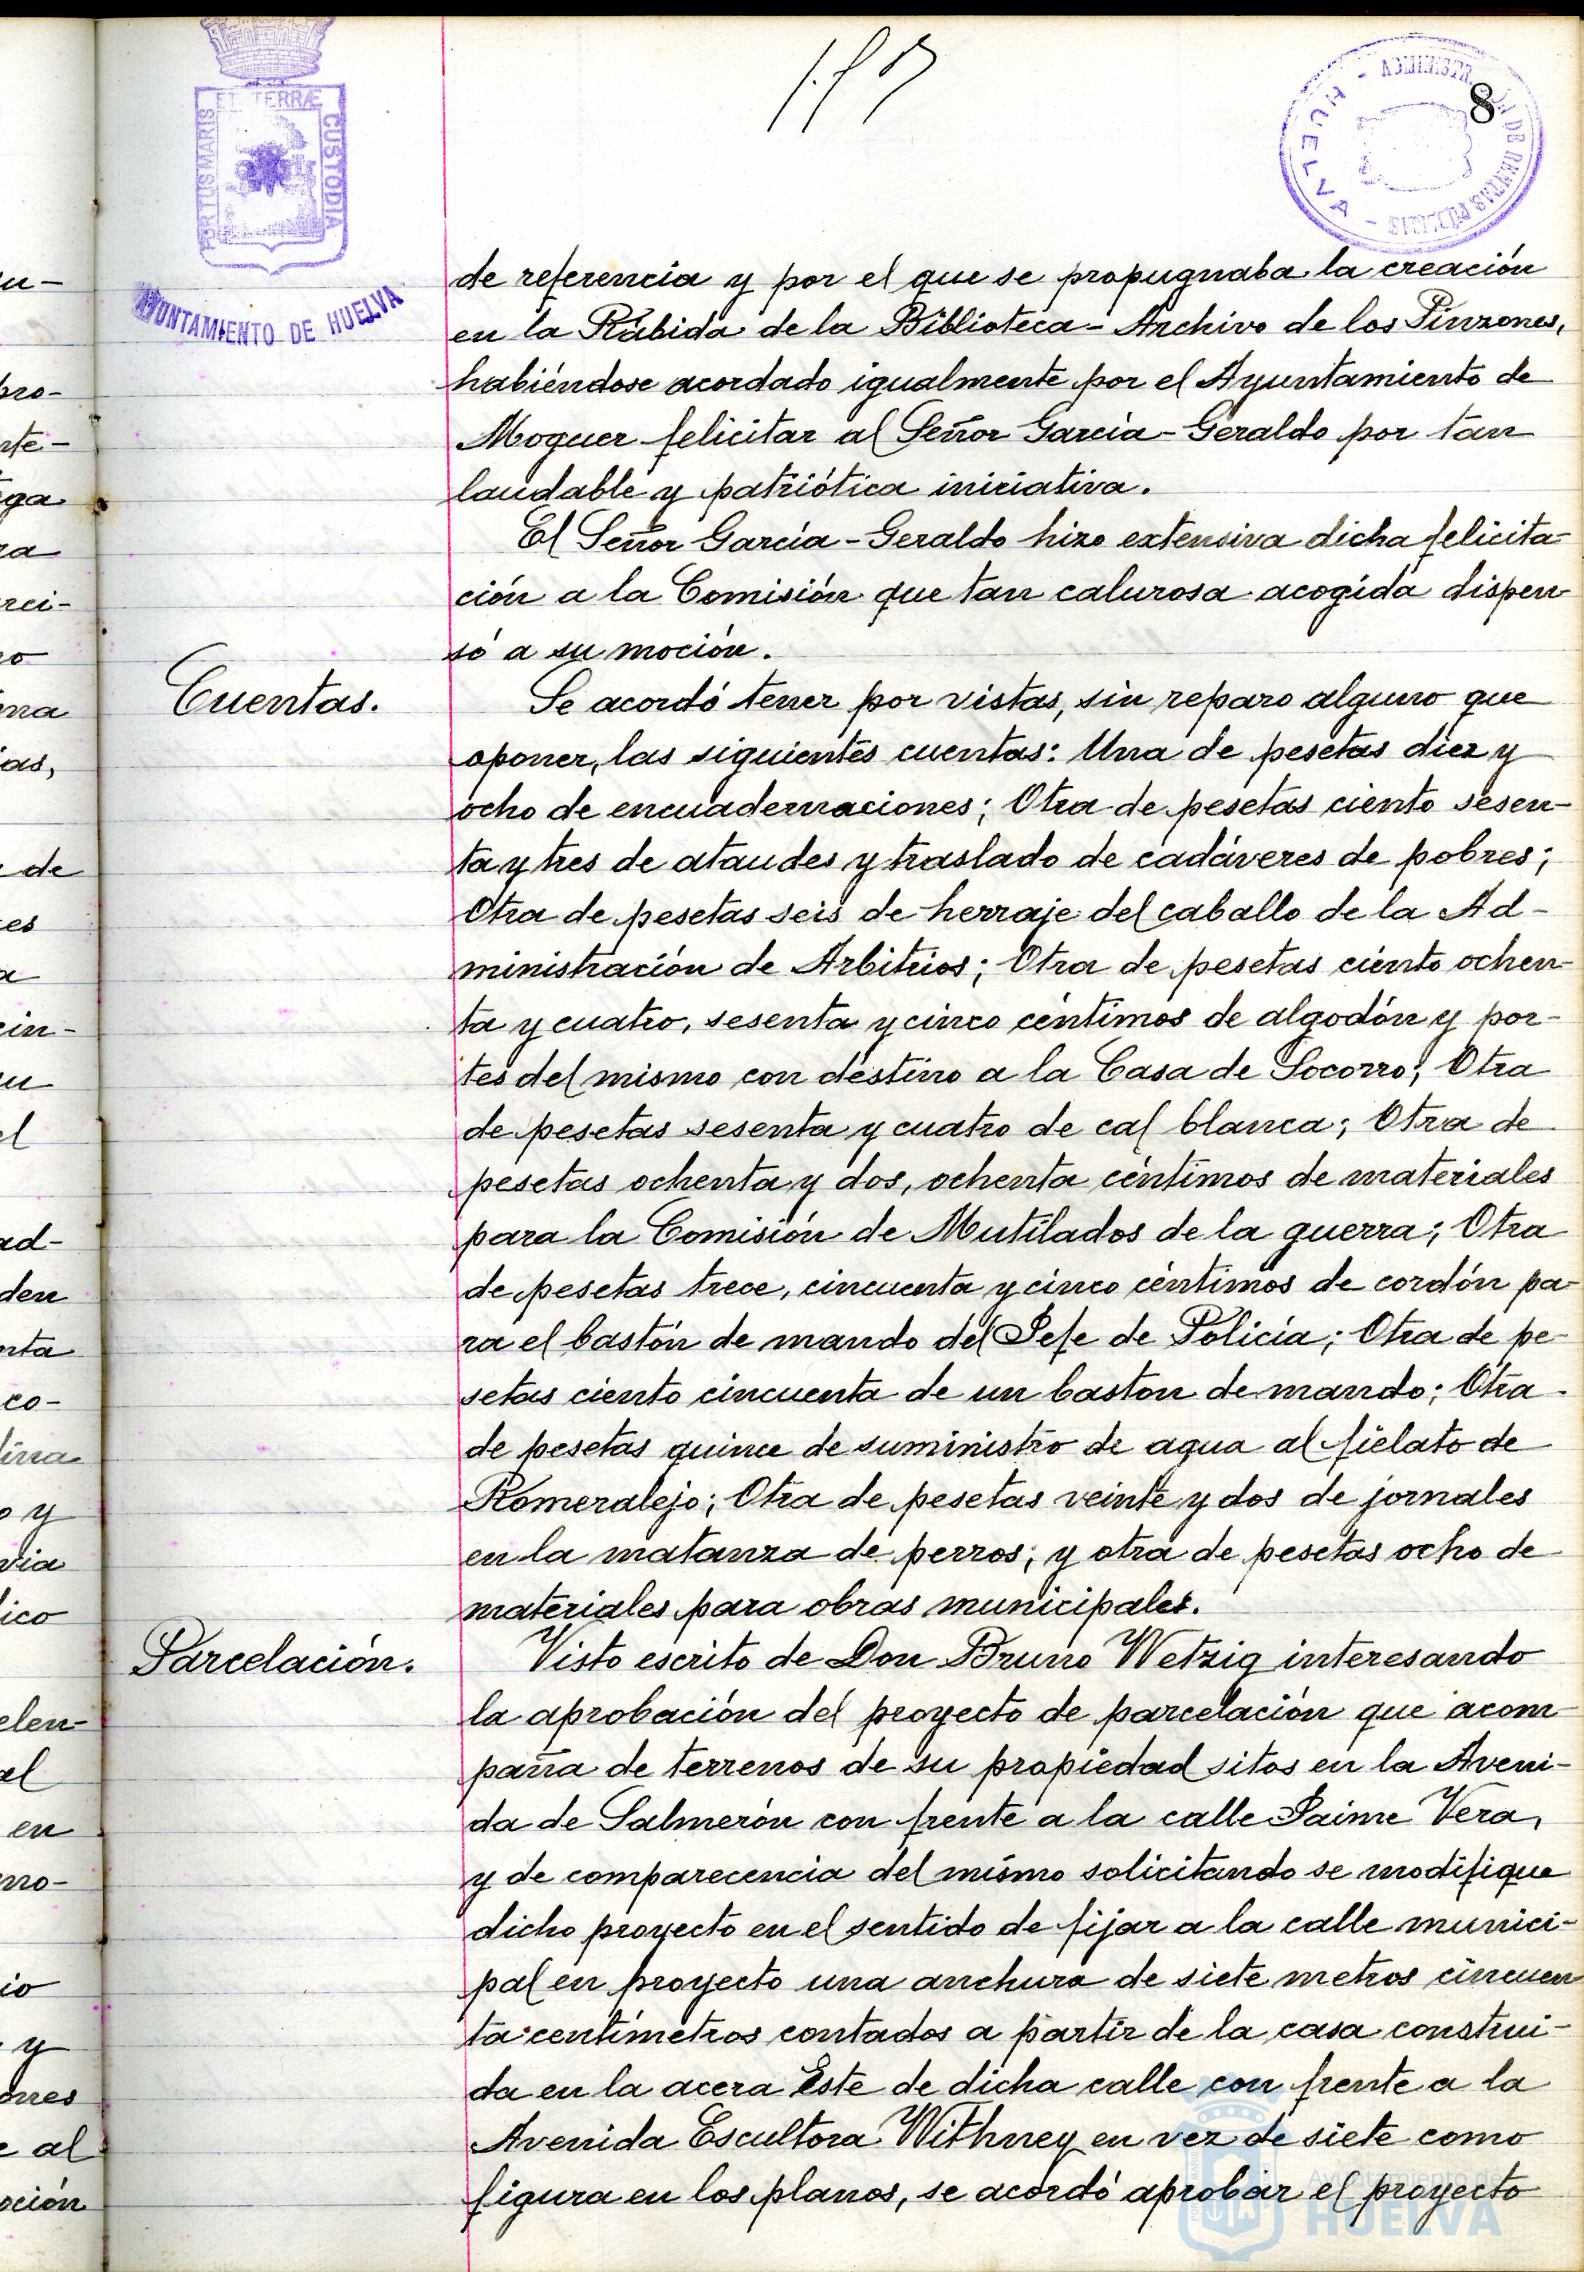 8
PORTUS MARIS ET TERRÆ CUSTODIA
AYUNTAMIENTO DE HUELVA
DE RENTAS PUBLICAS - HUELVA -
de referencia y por el que se propugnaba la creación
en la Rábida de la Biblioteca - Archivo de los Pinzones,
habiéndose acordado igualmente por el Ayuntamiento de
Moguer felicitar al Señor García - Geraldo por tan
laudable y patriótica iniciativa.
El Señor García - Geraldo hizo extensiva dicha felicita-
ción a la Comisión que tan calurosa acogida dispen
só a su moción.
Cuentas.
Se acordó tener por vistas, sin reparo alguno que
oponer, las siguientes cuentas: Una de pesetas diez y
ocho de encuadernaciones; Otra de pesetas ciento sesen-
ta y tres de ataudes y traslado de cadáveres de pobres;
Otra de pesetas seis de herraje del caballo de la Ad-
ministración de Arbitrios; Otra de pesetas ciento ochen-
ta y cuatro, sesenta y cinco céntimos de algodón y por-
tes del mismo con destino a la Casa de Socorro; Otra
de pesetas sesenta y cuatro de cal blanca; Otra de
pesetas ochenta y dos, ochenta céntimos de materiales
para la Comisión de Mutilados de la guerra; Otra
de pesetas trece, cincuenta y cinco céntimos de cordón pa-
ra el bastón de mando del Jefe de Policía; Otra de pe-
setas ciento cincuenta de un baston de mando; Otra
de pesetas quince de suministro de agua al fielato de
Romeralejo; Otra de pesetas veinte y dos de jornales
en la matanza de perros; y otra de pesetas ocho de
materiales para obras municipales.
Parcelación.
Visto escrito de Don Bruno Wetzig interesando
la aprobación del proyecto de parcelación que acom-
paña de terrenos de su propiedad sitos en la Aveni-
da de Salmerón con frente a la calle Jaime Vera,
y de comparecencia del mismo solicitando se modifique
dicho proyecto en el sentido de fijar a la calle munici-
pal en proyecto una anchura de siete metros cincuen
ta centímetros contados a partir de la casa construi-
da en la acera Este de dicha calle con frente a la
Avenida Escultora Withney en vez de siete como
figura en los planos, se acordó aprobar el proyecto
Ayuntamiento de
HUELVA